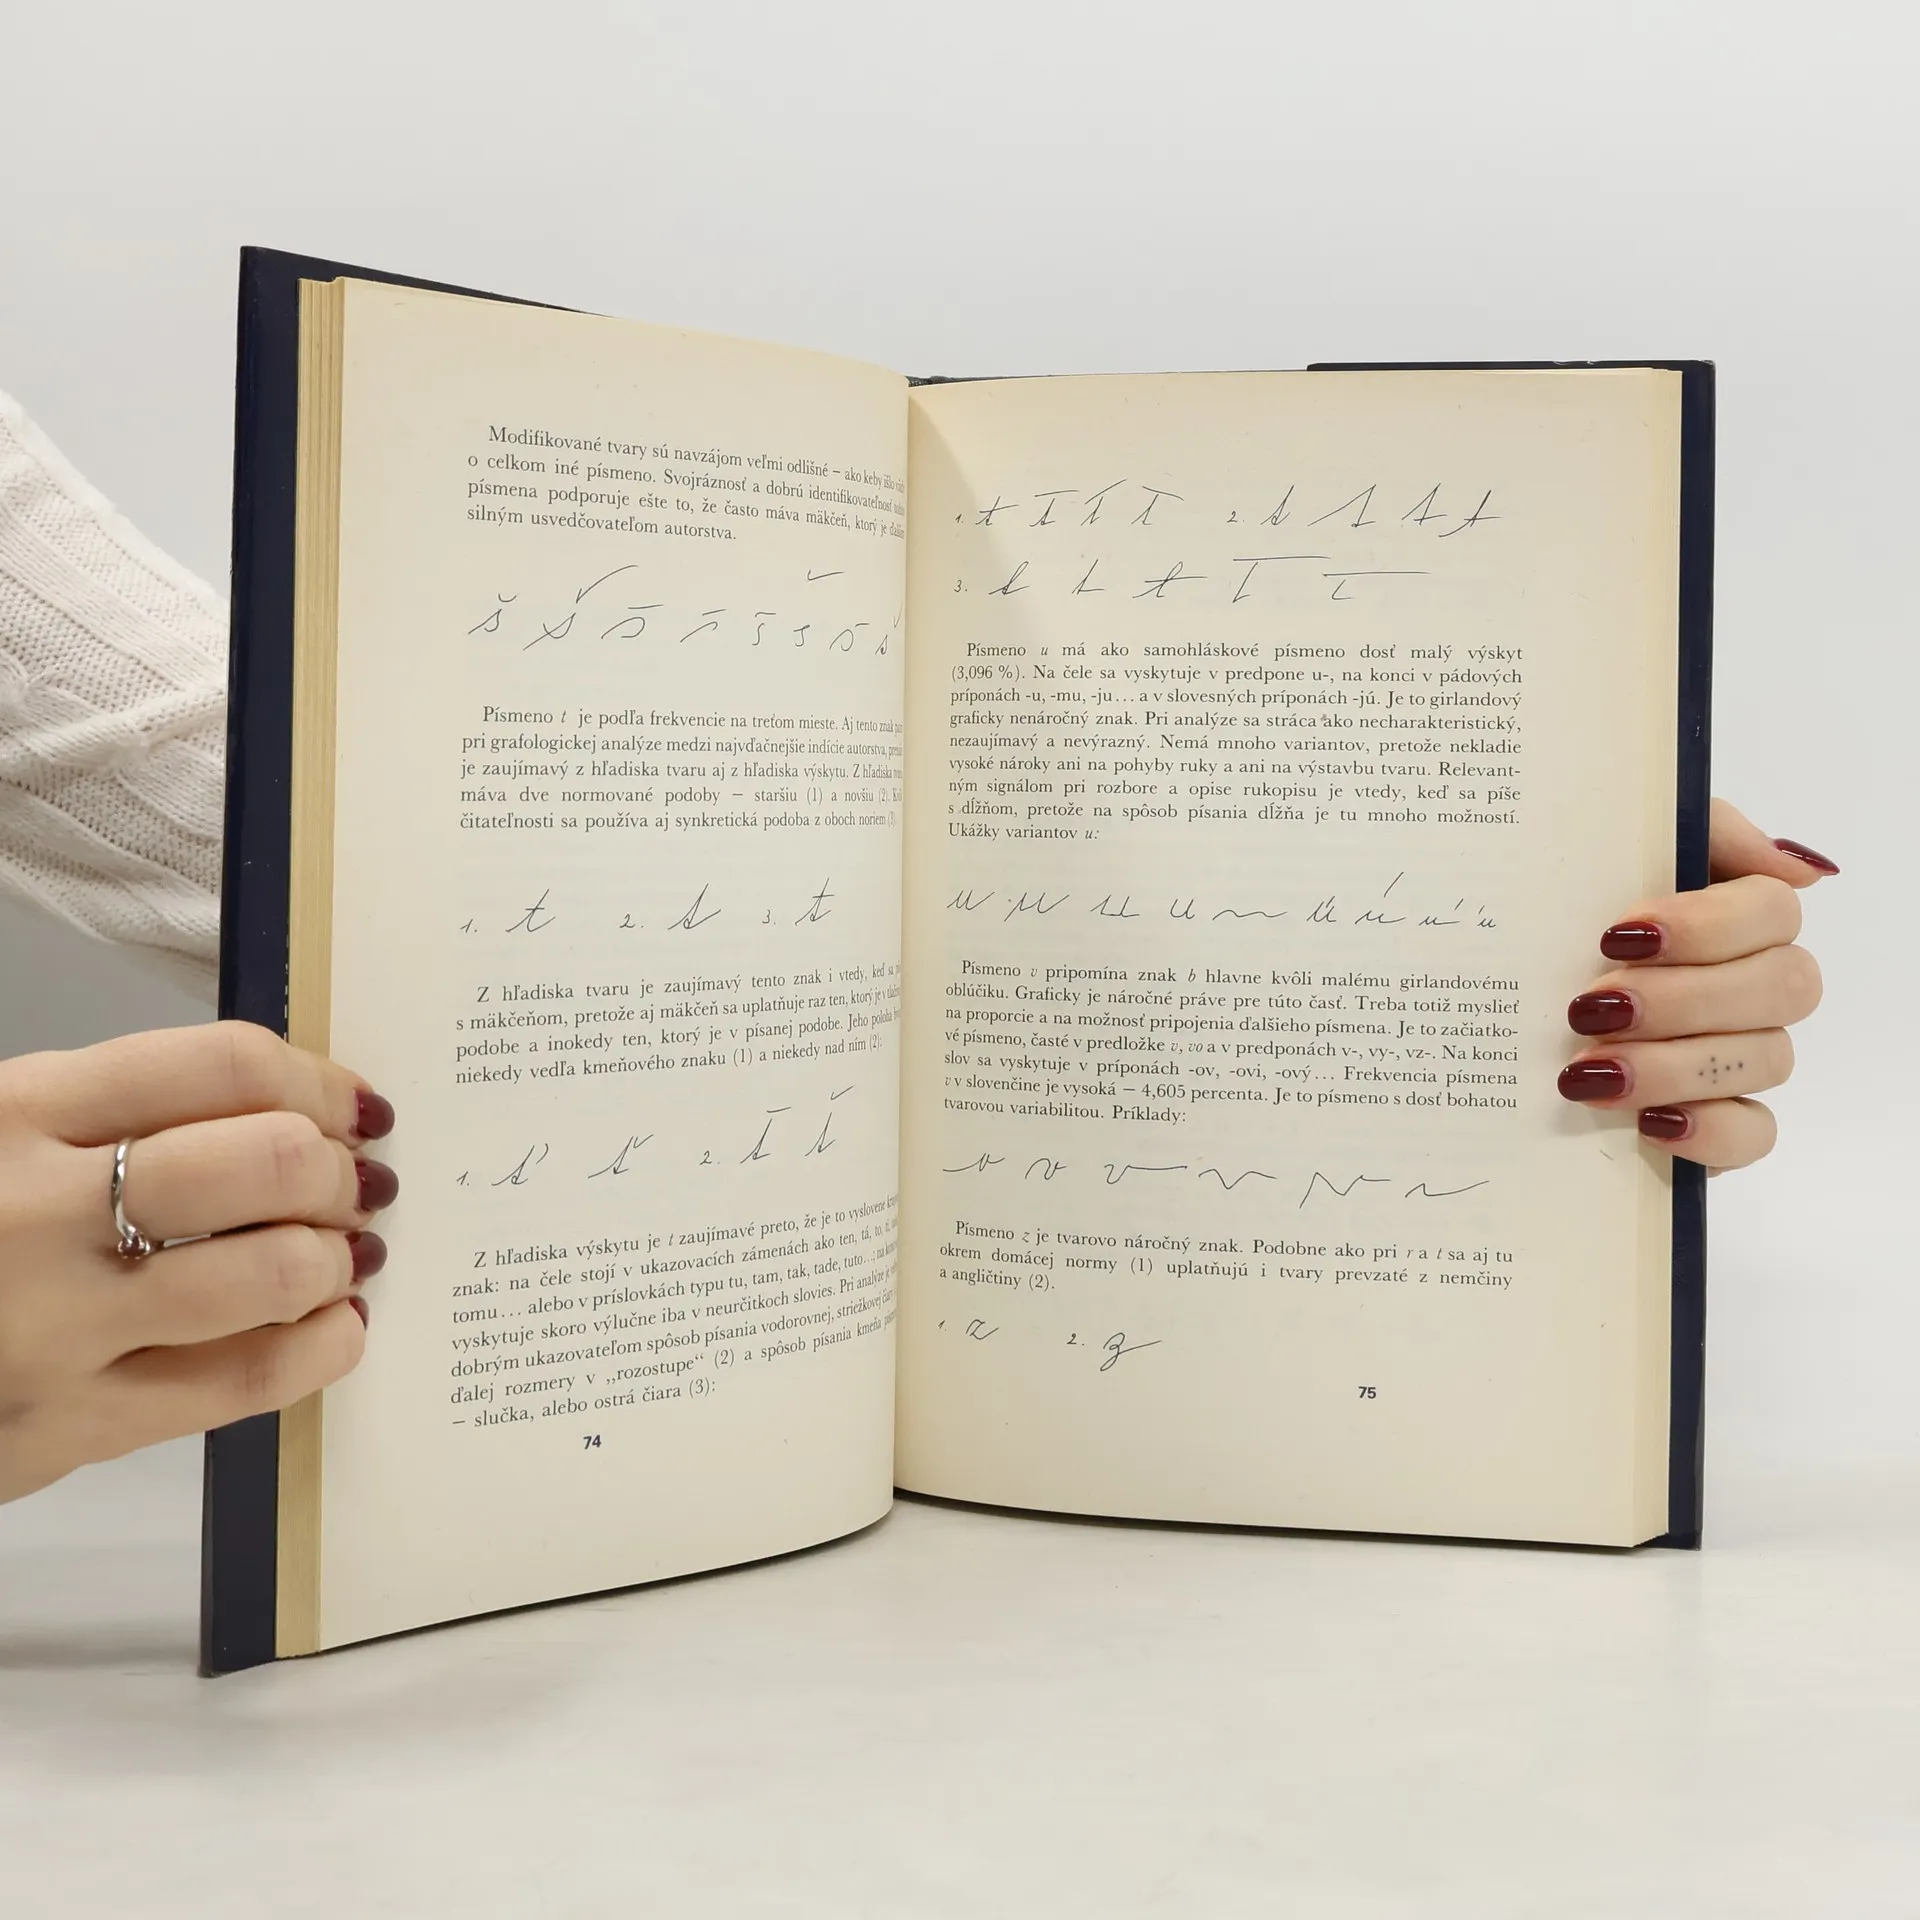 Modifikované tvary sú navzájom veľmi odlišné – ako keby išlo
o celkom iné písmeno. Svojráznosť a dobrú identifikovateľnosť
písmena podporuje ešte to, že často máva mäkčeň, ktorý je
silným usvedčovateľom autorstva.
š š š š š š š š
Písmeno t je podľa frekvencie na treťom mieste. Aj tento znak
pri grafologickej analýze medzi najvďačnejšie indície autorstva,
je zaujímavý z hľadiska tvaru aj z hľadiska výskytu. Z hľadiska
máva dve normované podoby – staršiu (1) a novšiu (2).
čitateľnosti sa používa aj synkretická podoba z oboch noriem (3)
1. t 2. t 3. t
Z hľadiska tvaru je zaujímavý tento znak i vtedy, keď sa
s mäkčeňom, pretože aj mäkčeň sa uplatňuje raz ten, ktorý je v
podobe a inokedy ten, ktorý je v písanej podobe. Jeho poloha
niekedy vedľa kmeňového znaku (1) a niekedy nad ním (2):
1. ť ť 2. ť ť
Z hľadiska výskytu je t zaujímavé preto, že je to vyslovene
znak: na čele stojí v ukazovacích zámenách ako ten, tá, to, tí,
tomu... alebo v príslovkách typu tu, tam, tak, tade, tuto...; na
vyskytuje skoro výlučne iba v neurčitkoch slovies. Pri analýze je
dobrým ukazovateľom spôsob písania vodorovnej, striežkovej čiary
ďalej rozmery v „rozostupe“ (2) a spôsob písania kmeňa
– slučka, alebo ostrá čiara (3):
74
1. t t t t 2. t t t t
3. t t t t t
Písmeno u má ako samohláskové písmeno dosť malý výskyt
(3,096 %). Na čele sa vyskytuje v predpone u-, na konci v pádových
príponách -u, -mu, -ju... a v slovesných príponách -jú. Je to girlandový
graficky nenáročný znak. Pri analýze sa stráca ako necharakteristický,
nezaujímavý a nevýrazný. Nemá mnoho variantov, pretože nekladie
vysoké nároky ani na pohyby ruky a ani na výstavbu tvaru. Relevant-
ným signálom pri rozbore a opise rukopisu je vtedy, keď sa píše
s dĺžňom, pretože na spôsob písania dĺžňa je tu mnoho možností.
Ukážky variantov u:
u u u u u ú ú ú ú
Písmeno v pripomína znak b hlavne kvôli malému girlandovému
oblúčiku. Graficky je náročné práve pre túto časť. Treba totiž myslieť
na proporcie a na možnosť pripojenia ďalšieho písmena. Je to začiatko-
vé písmeno, časté v predložke v, vo a v predponách v-, vy-, vz-. Na konci
slov sa vyskytuje v príponách -ov, -ovi, -ový... Frekvencia písmena
v v slovenčine je vysoká – 4,605 percenta. Je to písmeno s dosť bohatou
tvarovou variabilitou. Príklady:
v v v v v v
Písmeno z je tvarovo náročný znak. Podobne ako pri r a t sa aj tu
okrem domácej normy (1) uplatňujú i tvary prevzaté z nemčiny
a angličtiny (2).
1. z 2. z
75